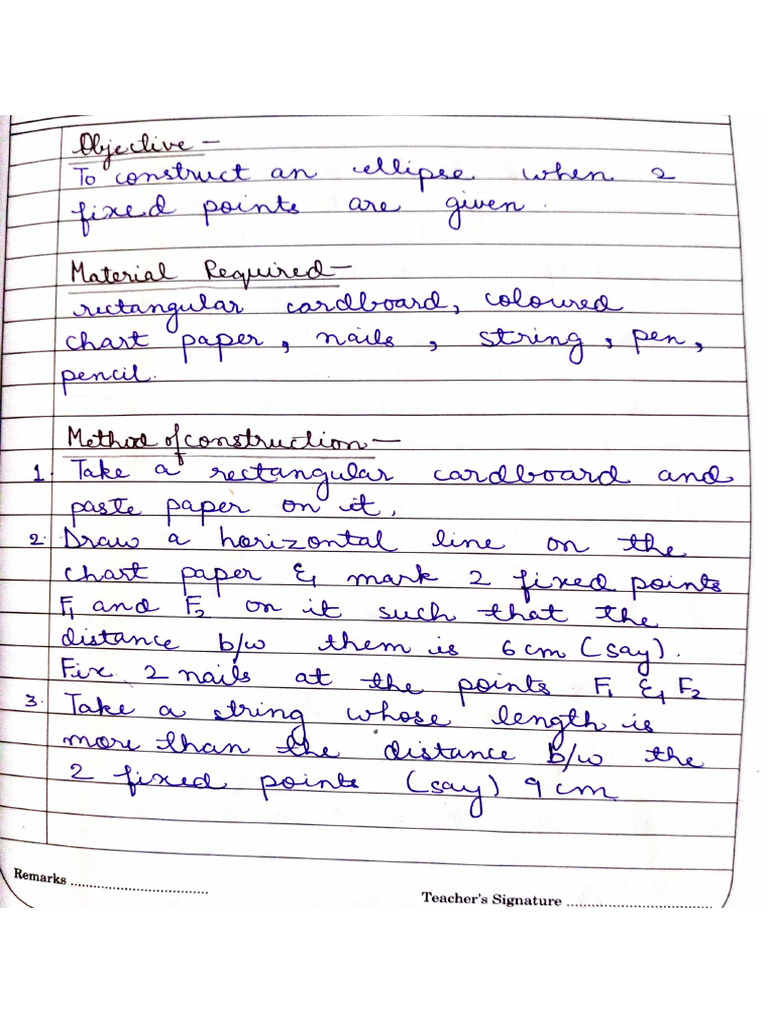 Objective -
To construct an ellipse when 2
fixed points are given.
Material Required -
rectangular cardboard, coloured
chart paper, nails, string, pen,
pencil.
Method of construction -
1. Take a rectangular cardboard and
paste paper on it,
2. Draw a horizontal line on the
chart paper & mark 2 fixed points
F1 and F2 on it such that the
distance b/w them is 6cm (say).
Fix 2 nails at the points F1 & F2
3. Take a string whose length is
more than the distance b/w the
2 fixed points (say) 9cm
Remarks ..................................
Teacher's Signature ..................................